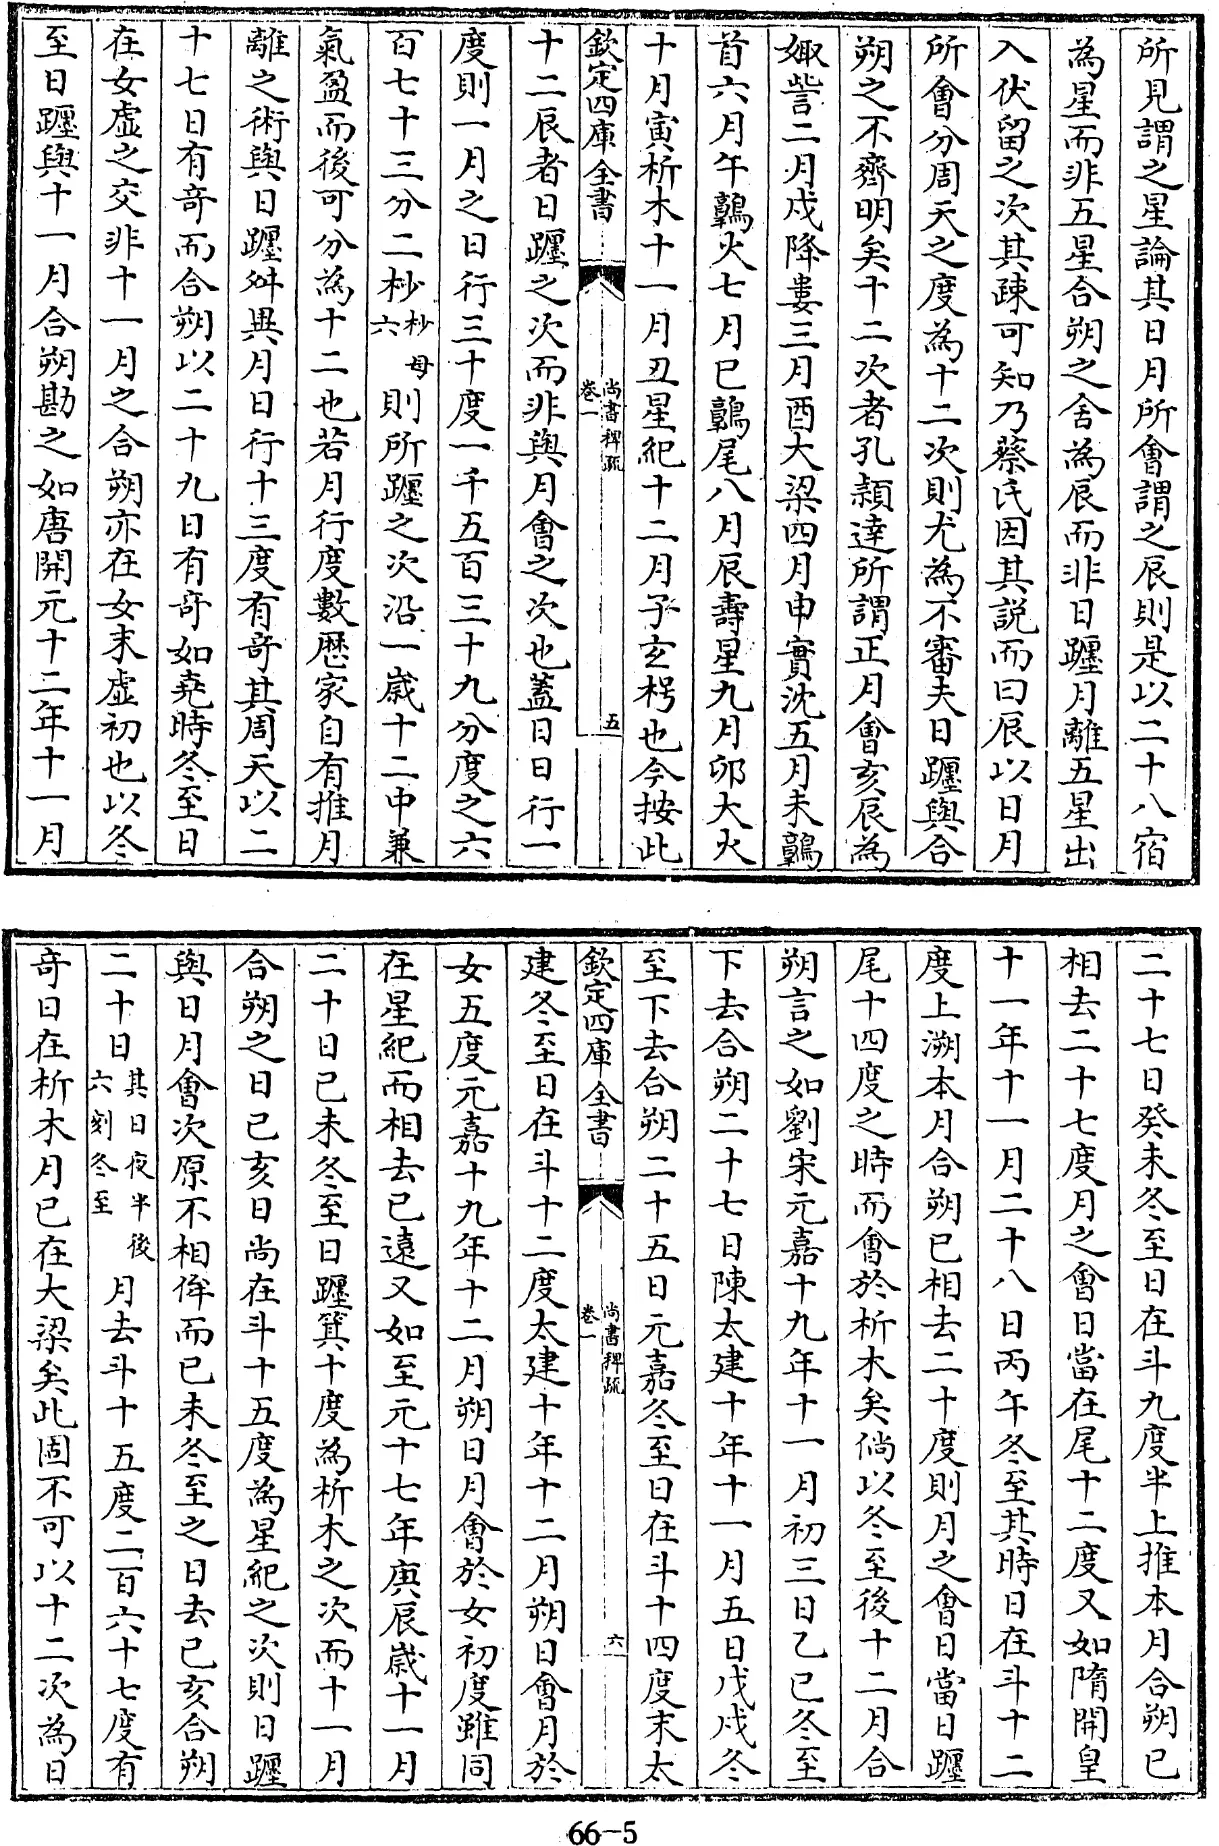 所見謂之星論其日月所會謂之辰則是以二十八宿
為星而非五星合朔之舍為辰而非日躔月離五星出
入伏留之次其疎可知乃蔡氏因其説而曰辰以日月
所會分周天之度為十二次則尤為不審夫日躔與合
朔之不齊明矣十二次者孔頴逹所謂正月會亥辰為
娵訾二月戍降婁三月酉大梁四月申實沈五月未鶉
首六月午鶉火七月巳鶉尾八月辰壽星九月卯大火
十月寅析木十一月丑星紀十二月子玄枵也今按此
欽定四庫全書
尚書稗疏
卷一
五
十二辰者日躔之次而非與月會之次也蓋日日行一
度則一月之日行三十度一千五百三十九分度之六
百七十三分二杪杪母六則所躔之次沿一歳十二中兼
氣盈而後可分為十二也若月行度數厯家自有推月
離之術與日躔舛異月日行十三度有竒其周天以二
十七日有竒而合朔以二十九日有竒如堯時冬至日
在女虛之交非十一月之合朔亦在女末虛初也以冬
至日躔與十一月合朔勘之如唐開元十二年十一月
二十七日癸未冬至日在斗九度半上推本月合朔已
相去二十七度月之會日當在尾十二度又如隋開皇
十一年十一月二十八日丙午冬至其時日在斗十二
度上溯本月合朔已相去二十度則月之會日當日躔
尾十四度之時而會於析木矣倘以冬至後十二月合
朔言之如劉宋元嘉十九年十一月初三日乙巳冬至
下去合朔二十七日陳太建十年十一月五日戊戍冬
至下去合朔二十五日元嘉冬至日在斗十四度末太
欽定四庫全書
尚書稗疏
卷一
六
建冬至日在斗十二度太建十年十二月朔日會月於
女五度元嘉十九年十二月朔日月會於女初度雖同
在星紀而相去已遠又如至元十七年庚辰歳十一月
二十日己未冬至日躔箕十度為析木之次而十一月
合朔之日己亥日尚在斗十五度為星紀之次則日躔
與日月會次原不相侔而己未冬至之日去己亥合朔
二十日其日夜半後六刻冬至月去斗十五度二百六十七度有
竒日在析木月已在大梁矣此固不可以十二次為日
66-5